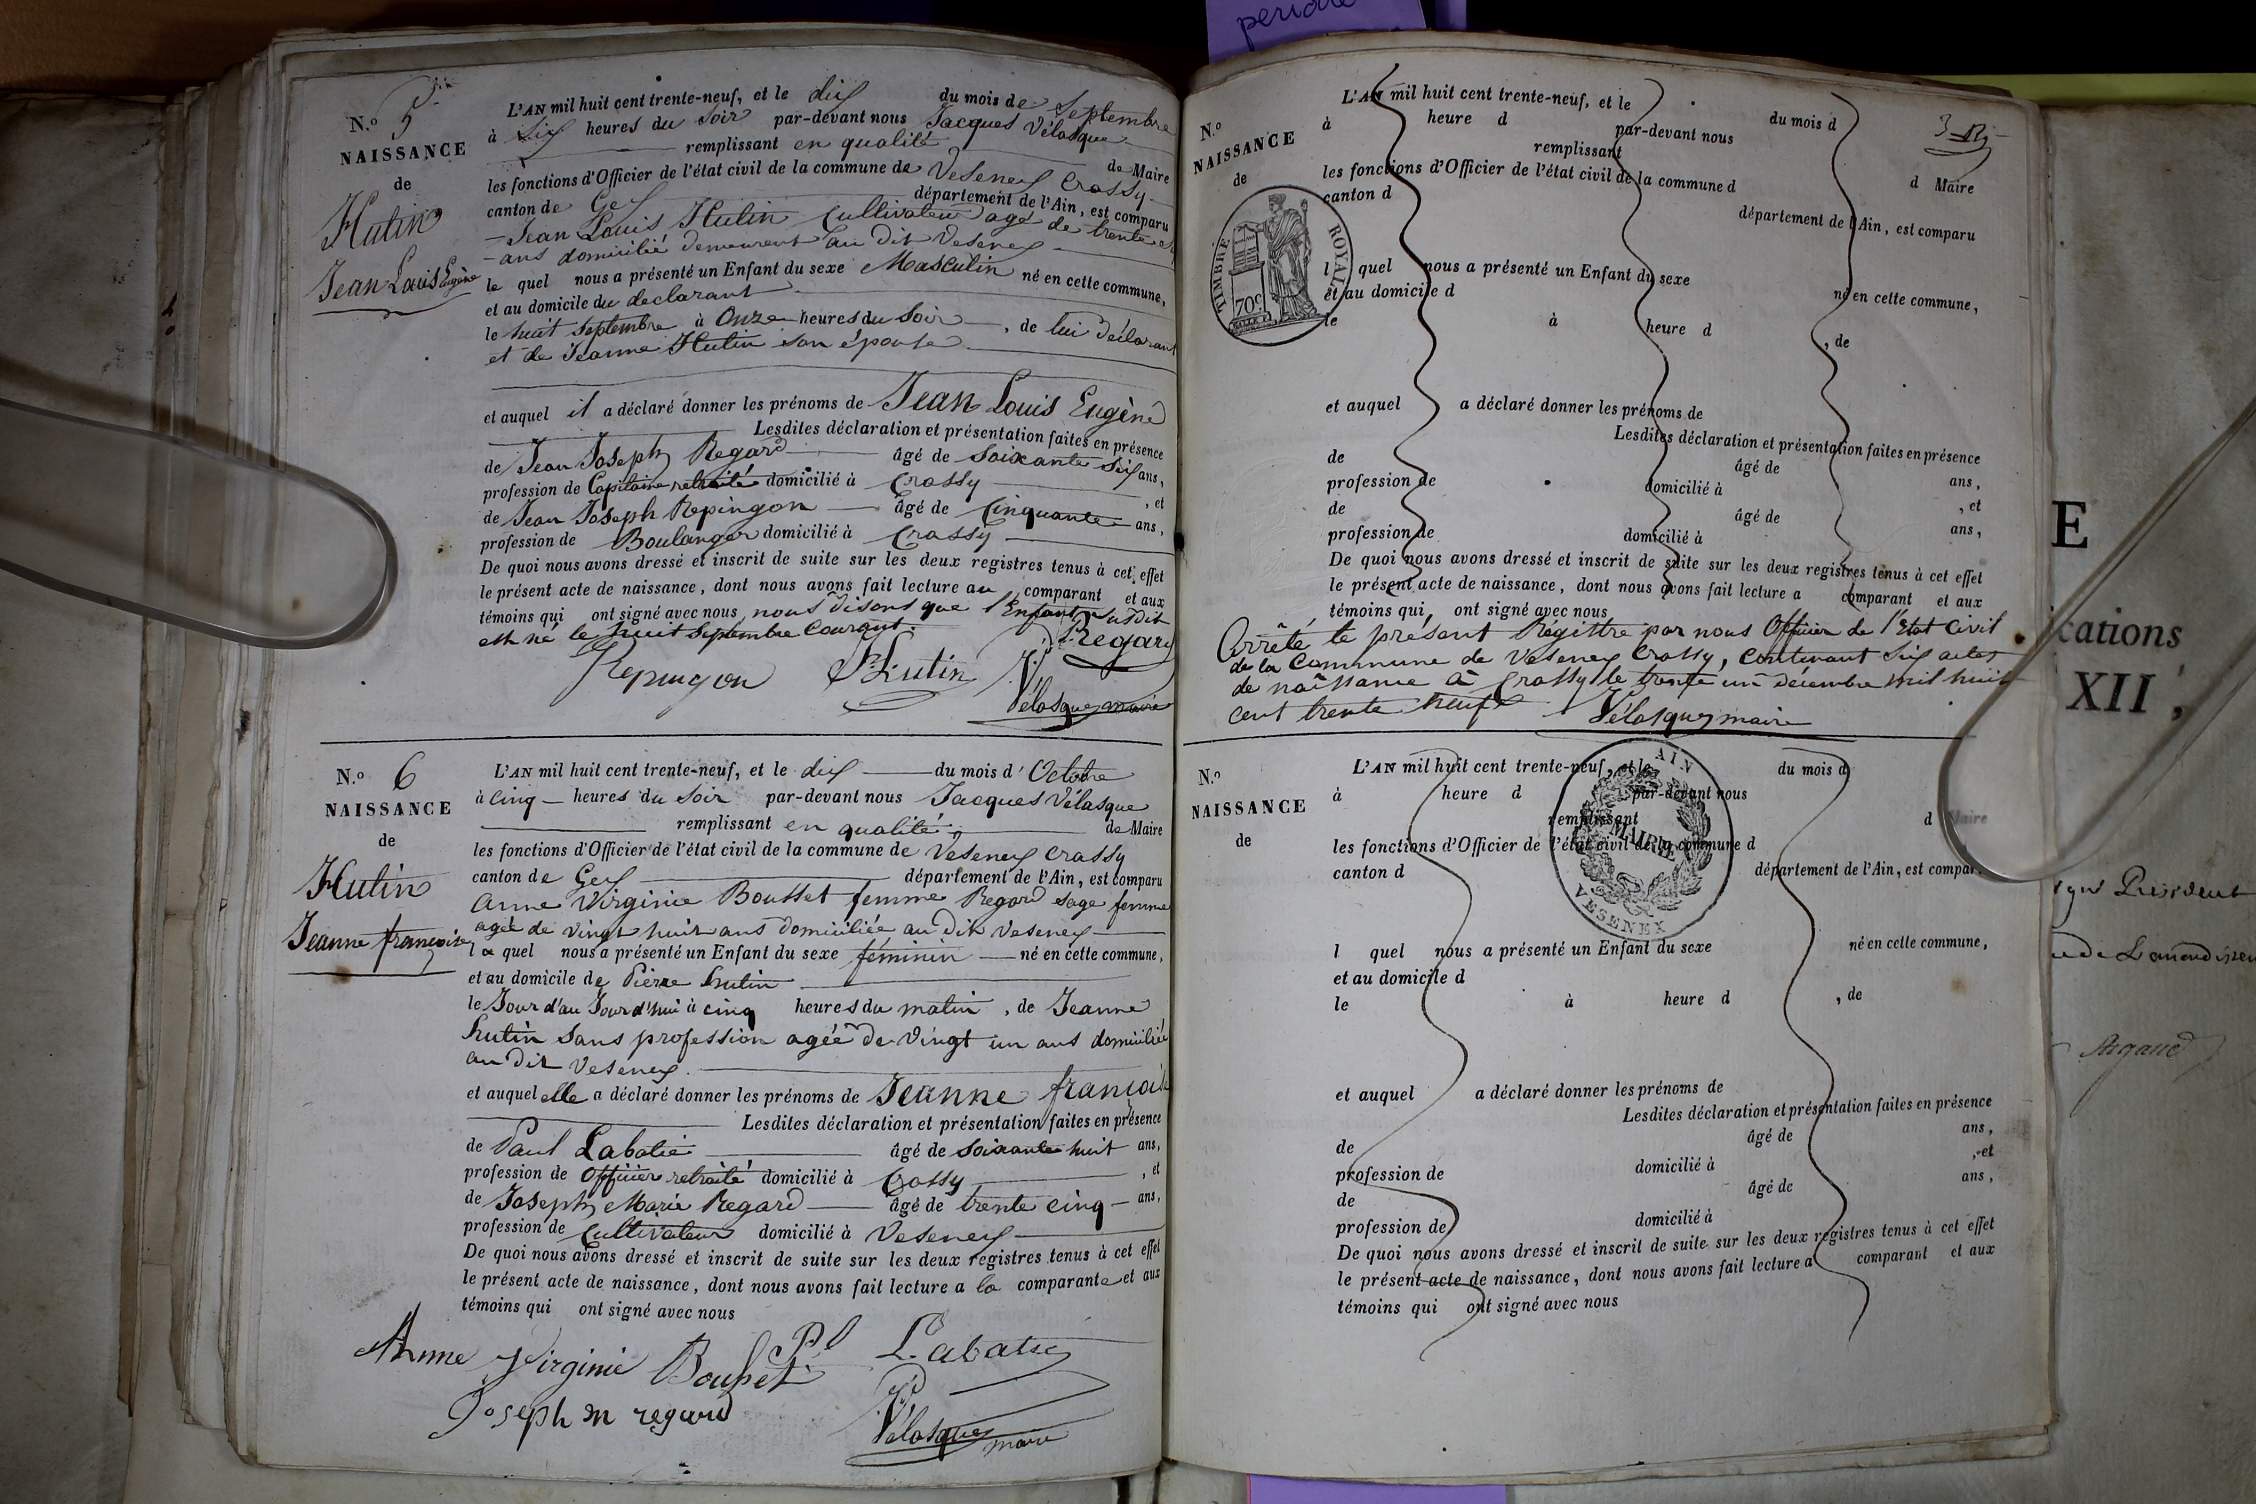 N.o 5
NAISSANCE
de
Hutin
Jean Louis Eugène
L'AN mil huit cent trente-neuf, et le dix du mois de Septembre
à Six heures du soir par-devant nous Jacques Vélasque
remplissant en qualité de Maire
les fonctions d'Officier de l'état civil de la commune de Vesenex Crassy
canton de Gex département de l'Ain, est comparu
Jean Louis Hutin Cultivateur agé de trente
ans domicilié demeurent au dit Vesenex
le quel nous a présenté un Enfant du sexe Masculin né en cette commune,
et au domicile du declarant
le huit Septembre à Onze heures du Soir, de lui déclarant
et de Jeanne Hutin son épouse
et auquel il a déclaré donner les prénoms de Jean Louis Eugène
Lesdites déclaration et présentation faites en présence
de Jean Joseph Regard âgé de soixante six ans,
profession de Capitaine retraité domicilié à Crassy, et
de Jean Joseph Repingon âgé de Cinquante ans,
profession de Boulanger domicilié à Crassy
De quoi nous avons dressé et inscrit de suite sur les deux registres tenus à cet effet
le présent acte de naissance, dont nous avons fait lecture au comparant et aux
témoins qui ont signé avec nous nous disons que l'Enfant susdit
est né le huit Septembre Courant
Regard
Repingon Hutin
Vélasque maire
N.o 6
NAISSANCE
de
Hutin
Jeanne françoise
L'AN mil huit cent trente-neuf, et le dix du mois d'Octobre
à cinq heures du soir par-devant nous Jacques Vélasque
remplissant en qualité de Maire
les fonctions d'Officier de l'état civil de la commune de Vesenex Crassy
canton de Gex département de l'Ain, est comparu
Anne Virginie Bousset femme Regard sage femme
agée de vingt huit ans domiciliée au dit Vesenex
la quel nous a présenté un Enfant du sexe féminin né en cette commune,
et au domicile de Pierre hutin
le Jour d'au Jourd'hui à cinq heures du matin, de Jeanne
hutin sans profession agéé de vingt un ans domiciliée
au dit Vesenex.
et auquel elle a déclaré donner les prénoms de Jeanne françoise
Lesdites déclaration et présentation faites en présence
de Paul Labatie âgé de soixante huit ans,
profession de Officier retraité domicilié à Crassy, et
de Joseph Marie Regard âgé de trente cinq ans,
profession de Cultivateur domicilié à Vesenex
De quoi nous avons dressé et inscrit de suite sur les deux registres tenus à cet effet
le présent acte de naissance, dont nous avons fait lecture a la comparante et aux
témoins qui ont signé avec nous
Anne Virginie Bousset Pl Labatie
Joseph m regard
Vélasque maire
N.o
NAISSANCE
de
TIMBRE ROYAL
70c
L'AN mil huit cent trente-neuf, et le du mois d
à heure d par-devant nous
remplissant d Maire
les fonctions d'Officier de l'état civil de la commune d
canton d département de l'Ain, est comparu
l quel nous a présenté un Enfant du sexe né en cette commune,
et au domicile d
le à heure d , de
et auquel a déclaré donner les prénoms de
Lesdites déclaration et présentation faites en présence
de âgé de ans,
profession de domicilié à , et
de âgé de ans,
profession de domicilié à
De quoi nous avons dressé et inscrit de suite sur les deux registres tenus à cet effet
le présent acte de naissance, dont nous avons fait lecture a comparant et aux
témoins qui ont signé avec nous
Arrêté le présent Régittre par nous Officier de l'Etat Civil
de la Commune de Vesenex Crassy, contenant Six actes
de naissance à Crassy le trente un décembre mil huit
cent trente neuf Vélasque maire
N.o
NAISSANCE
de
AIN
MAIRIE
VESENEX
L'AN mil huit cent trente-neuf, et le du mois d
à heure d par-devant nous
remplissant d Maire
les fonctions d'Officier de l'état civil de la commune d
canton d département de l'Ain, est compar
l quel nous a présenté un Enfant du sexe né en cette commune,
et au domicile d
le à heure d , de
et auquel a déclaré donner les prénoms de
Lesdites déclaration et présentation faites en présence
de âgé de ans,
profession de domicilié à , et
de âgé de ans,
profession de domicilié à
De quoi nous avons dressé et inscrit de suite sur les deux registres tenus à cet effet
le présent acte de naissance, dont nous avons fait lecture a comparant et aux
témoins qui ont signé avec nous
E
cations
XII,
Président